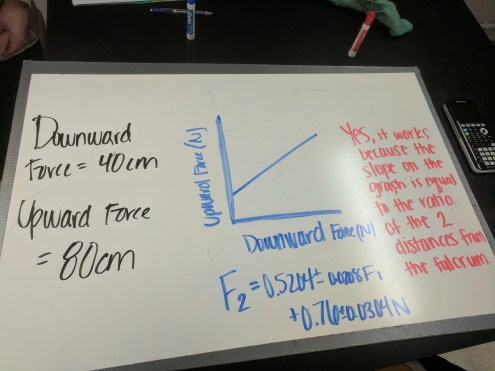 Downward
Force = 40cm
Upward Force
= 80cm
Upward Force (N)
Downward Force (N)
F₂ = 0.5204 ± 0.0208 F₁
+ 0.76 ± 0.0304 N
Yes, it works
because the
slope on the
graph is equal
to the ratio
of the 2
distances from
the fulcrum.
EXPO